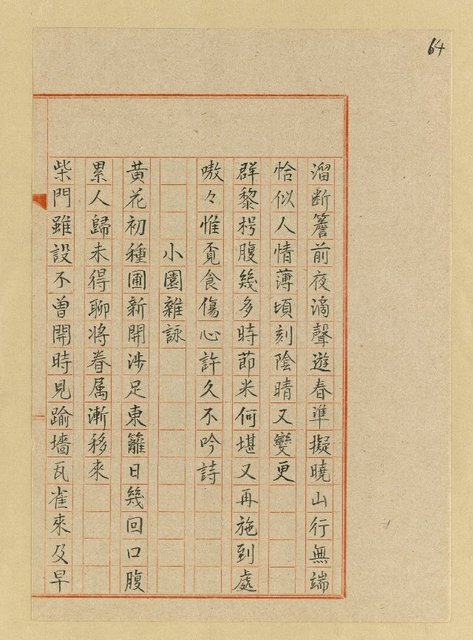 64
溜断簷前夜滴聲遊春準擬曉山行無端
恰似人情薄頃刻陰晴又變更
群黎枵腹幾多時節米何堪又再施到處
嗷々惟覓食傷心許久不吟詩
小園雜詠
黄花初種圃新開涉足東籬日幾回口腹
累人歸未得聊將眷属漸移來
柴門雖設不曽開時見踰墻瓦雀來及早